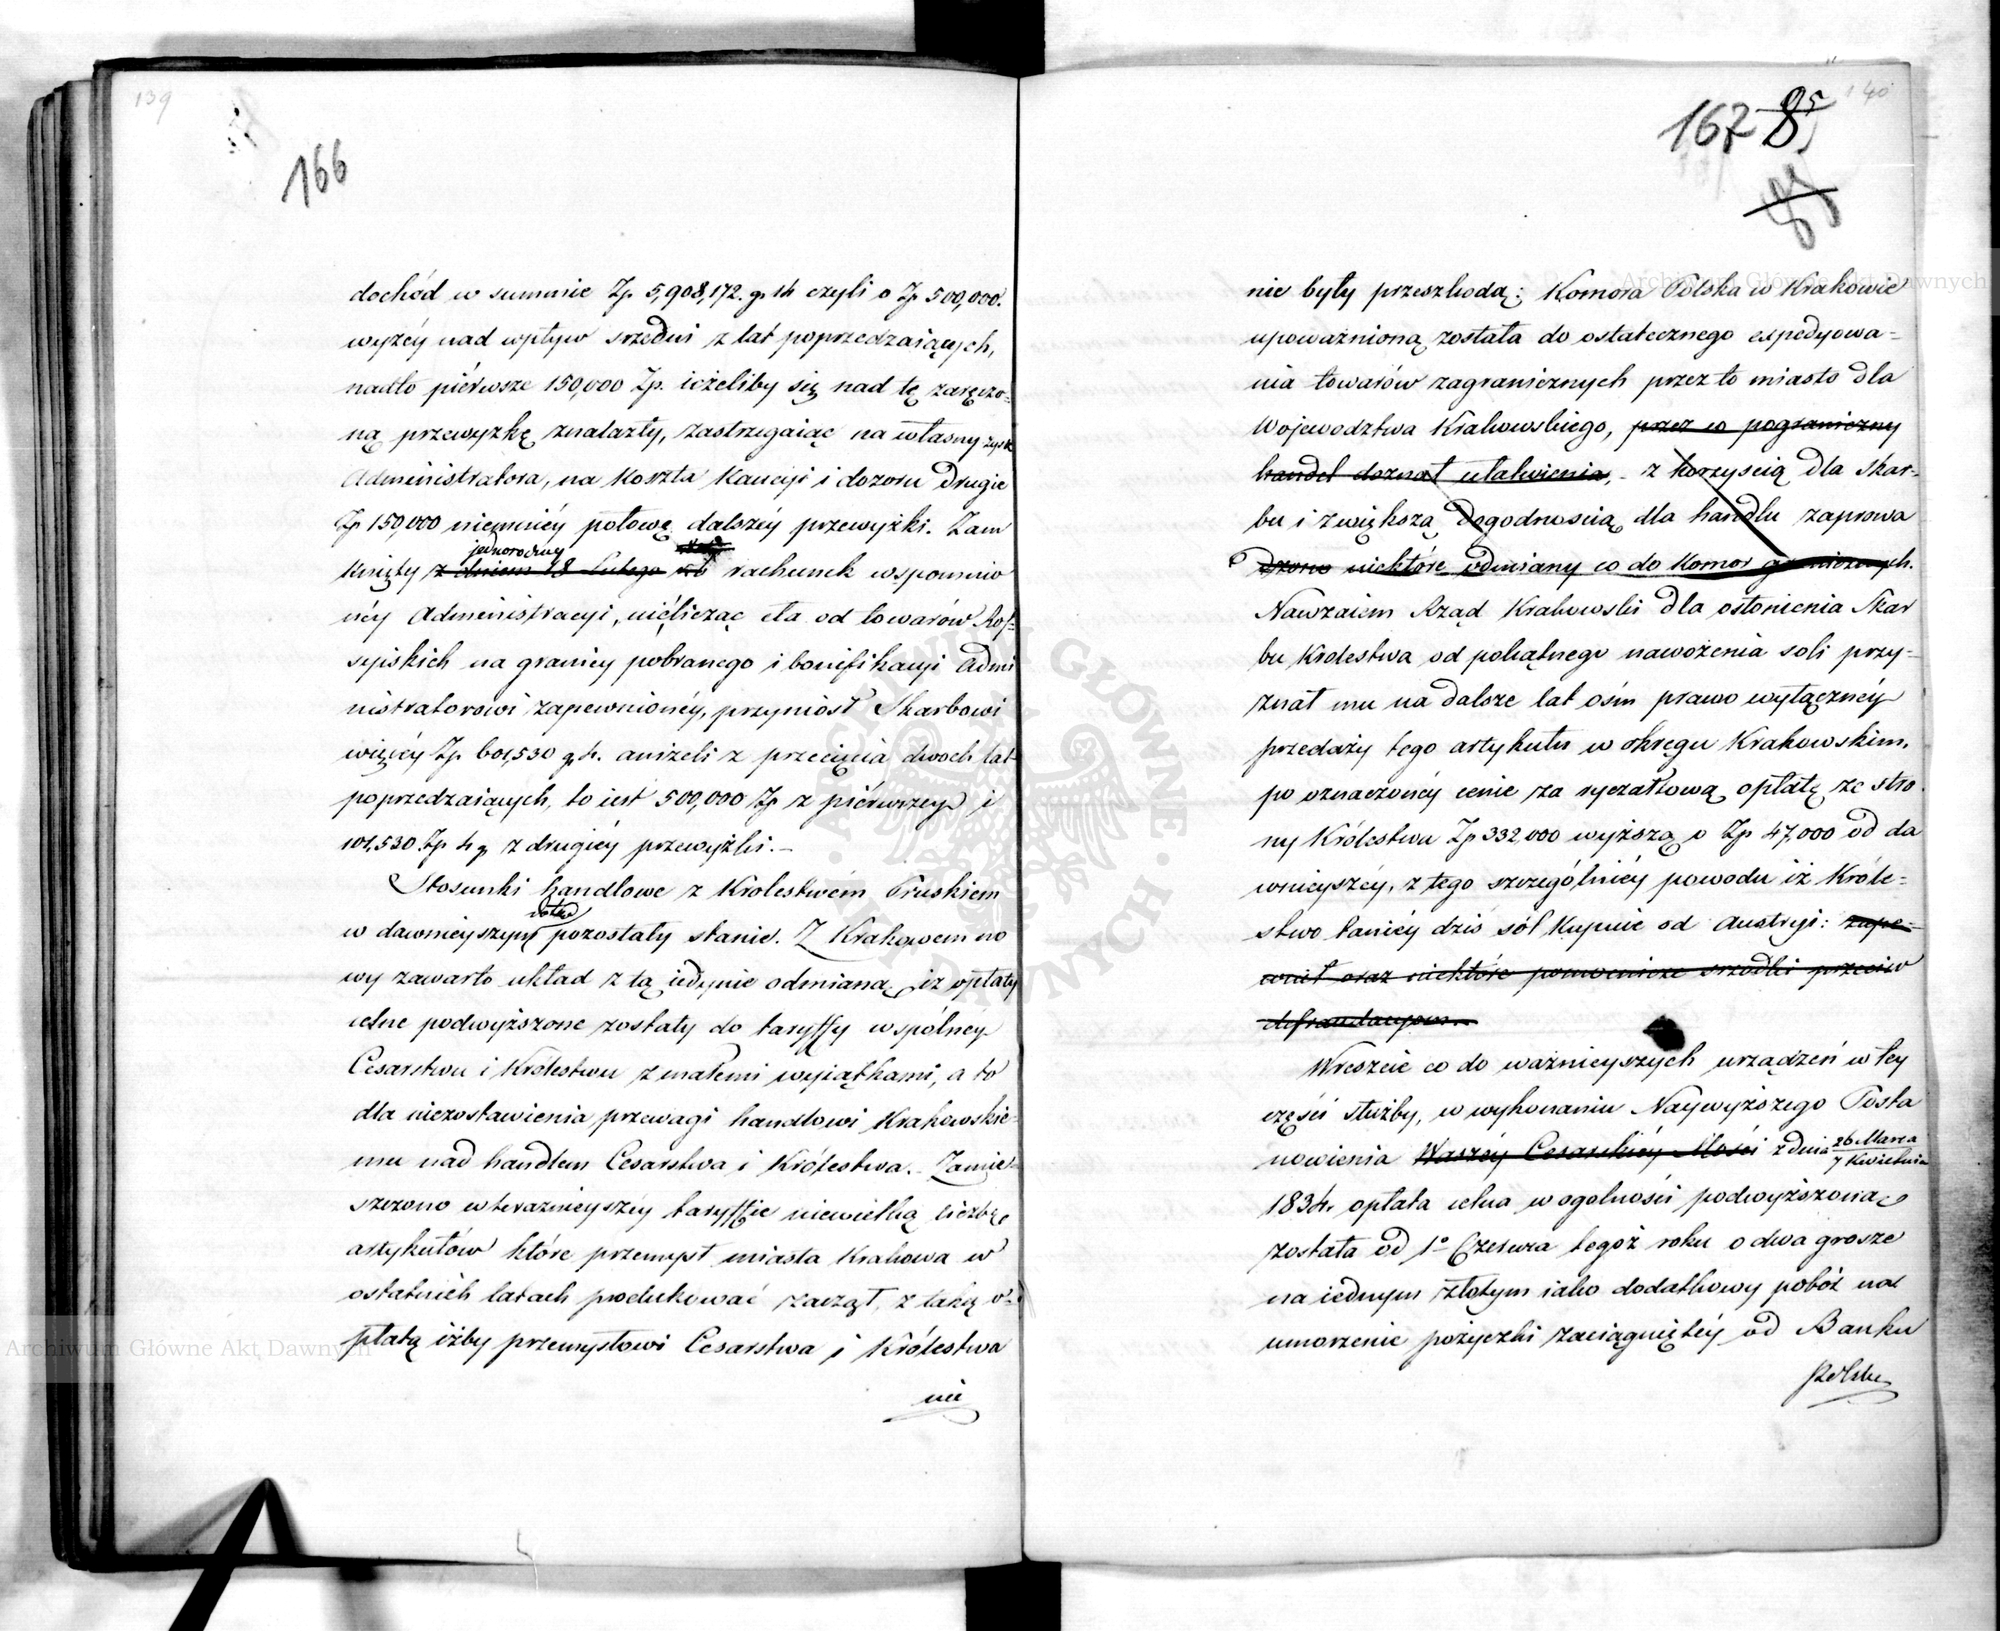 139
166
dochód w summie Zp. 5,908,172. g. 14 czyli o Zp 500,000.
wyżéy nad wpływ srzedni z lat poprzedzaiących,
nadto piérwsze 150,000 Zp. ieżeliby się nad tę zaręczo-
ną przewyżkę znalazły, zastrzegaiąc na własny zysk
Administratora, na koszta Kaucyi i dozoru drugie
Zp 150,000 niemniéy połowę dalszéy przewyżki. Zam
jednoroczny
knięty z dniem 18 Lutego rachunek wspomnio
néy Administracyi, nielicząc cła od towarów Ros-
syiskich na granicy pobranego i bonifikacyi Admi
nistratorowi zapewnionéy, przyniósł Skarbowi
więcéy Zp. 601,530 g. 4. aniżeli z przecięcia dwoch lat
poprzedzaiących, to iest 500,000 Zp z piérwszey i
101,530 Zp 4 g z drugiéy przewyżki.-
Stosunki handlowe z Krolestwém Pruskiem
w dawnieyszym pozostały stanie. Z Krakowem no
wy zawarto układ z tą iedynie odmianą, iż opłaty
celne podwyższone zostały do taryffy wspólnéy
Cesarstwu i Królestwu z małemi wyiątkami, a to
dla niezostawienia przewagi handlowi Krakowskie-
mu nad handlem Cesarstwa i Królestwa. Zamie-
szczono w teraznieyszéy taryffie niewielką liczbę
artykułów które przemysł miasta Krakowa w
ostatnich latach produkować zaczął, z taką o-
płatą iżby przemysłowi Cesarstwa i Królestwa
nie
140
167 85
85
nie były przeszkodą: Komora Polska w Krakowie
upoważnioną została do ostatecznego expedyowa-
nia towarów zagranicznych przez to miasto dla
Wojewodztwa Krakowskiego, przez co pograniczny
handel doznał ułatwienia, - z korzyscią dla Skar-
bu i zwiększą dogodnoscią dla handlu zaprowa
dzono niektóre odmiany co do Komor granicznych.
Nawzaiem Rząd Krakowski dla osłonienia Skar
bu Krolestwa od pokątnego nawożenia soli przy-
znał mu na dalsze lat ośm prawo wyłącznéy
przedaży tego artykułu w okręgu Krakowskim,
po oznaczonéy cenie za ryczałtową opłatę ze stro
ny Królestwa Zp 332,000 wyższą o Zp 47,000 od da
wnieyszéy, z tego szczególniéy powodu iż Króle-
stwo taniéy dziś sól kupuie od Austryi: zape-
wnił oraz niektóre pomocnicze srzodki przeciw
defraudacyom.-
Wreszcie co do ważnieyszych urządzeń w tey
części służby, w wykonaniu Naywyższego Posta
nowienia Waszéy Cesarskiéy Mości z dnia 26 Marca / 7 Kwietnia
1834. opłata celna w ogolności podwyższona
została od 1º Czerwca tegoż roku o dwa grosze
na iednym złotym iako dodatkowy pobór na
umorzenie pożyczki zaciągniętéy od Banku
Polskie
Archiwum Główne Akt Dawnych
Archiwum Główne Akt Dawnych
ARCHIWUM GŁÓWNE AKT DAWNYCH